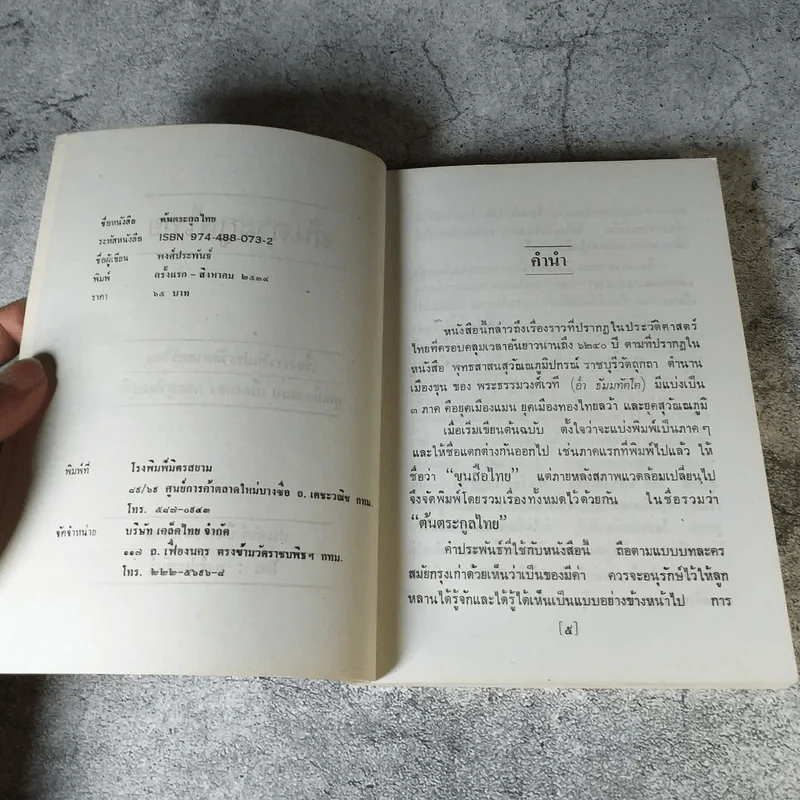 ชื่อหนังสือ ต้นตระกูลไทย
รหัสหนังสือ ISBN 974-488-073-2
ชื่อผู้เขียน พงศ์ประพันธ์
พิมพ์ ครั้งแรก - สิงหาคม ๒๕๓๔
ราคา ๖๕ บาท
พิมพ์ที่ โรงพิมพ์มิตรสยาม
๘๙/๖๙ ศูนย์การค้าตลาดใหม่บางซื่อ ถ. เตชะวณิช กทม.
โทร. ๕๘๗-๐๙๔๓
จัดจำหน่าย บริษัท เคล็ดไทย จำกัด
๑๑๗ ถ. เฟื่องนคร ตรงข้ามวัดราชบพิธฯ กทม.
โทร. ๒๒๒-๕๖๙๖-๘
คำนำ
หนังสือนี้กล่าวถึงเรื่องราวที่ปรากฏในประวัติศาสตร์
ไทยที่ครอบคลุมเวลาอันยาวนานถึง ๖๒๔๐ ปี ตามที่ปรากฏใน
หนังสือ พุทธสาสนสุวัณณภูมิปกรณ์ ราชบุรีวัดถุกถา ตำนาน
เมืองขุน ของ พระธรรมวงศ์เวที (อ่ำ ธัมมทัตโต) มีแบ่งเป็น
๓ ภาค คือยุคเมืองแมน ยุคเมืองทองไทยลว้า และยุคสุวัณณภูมิ
เมื่อเริ่มเขียนต้นฉบับ ตั้งใจว่าจะแบ่งพิมพ์เป็นภาคๆ
และให้ชื่อแตกต่างกันออกไป เช่นภาคแรกที่พิมพ์ไปแล้ว ให้
ชื่อว่า “ขุนสือไทย” แต่ภายหลังสภาพแวดล้อมเปลี่ยนไป
จึงจัดพิมพ์โดยรวมเรื่องทั้งหมดไว้ด้วยกัน ในชื่อรวมว่า
“ต้นตระกูลไทย”
คำประพันธ์ที่ใช้กับหนังสือนี้ ถือตามแบบบทละคร
สมัยกรุงเก่าด้วยเห็นว่าเป็นของมีค่า ควรจะอนุรักษ์ไว้ให้ลูก
หลานได้รู้จักและได้รู้ได้เห็นเป็นแบบอย่างข้างหน้าไป การ
[๕]